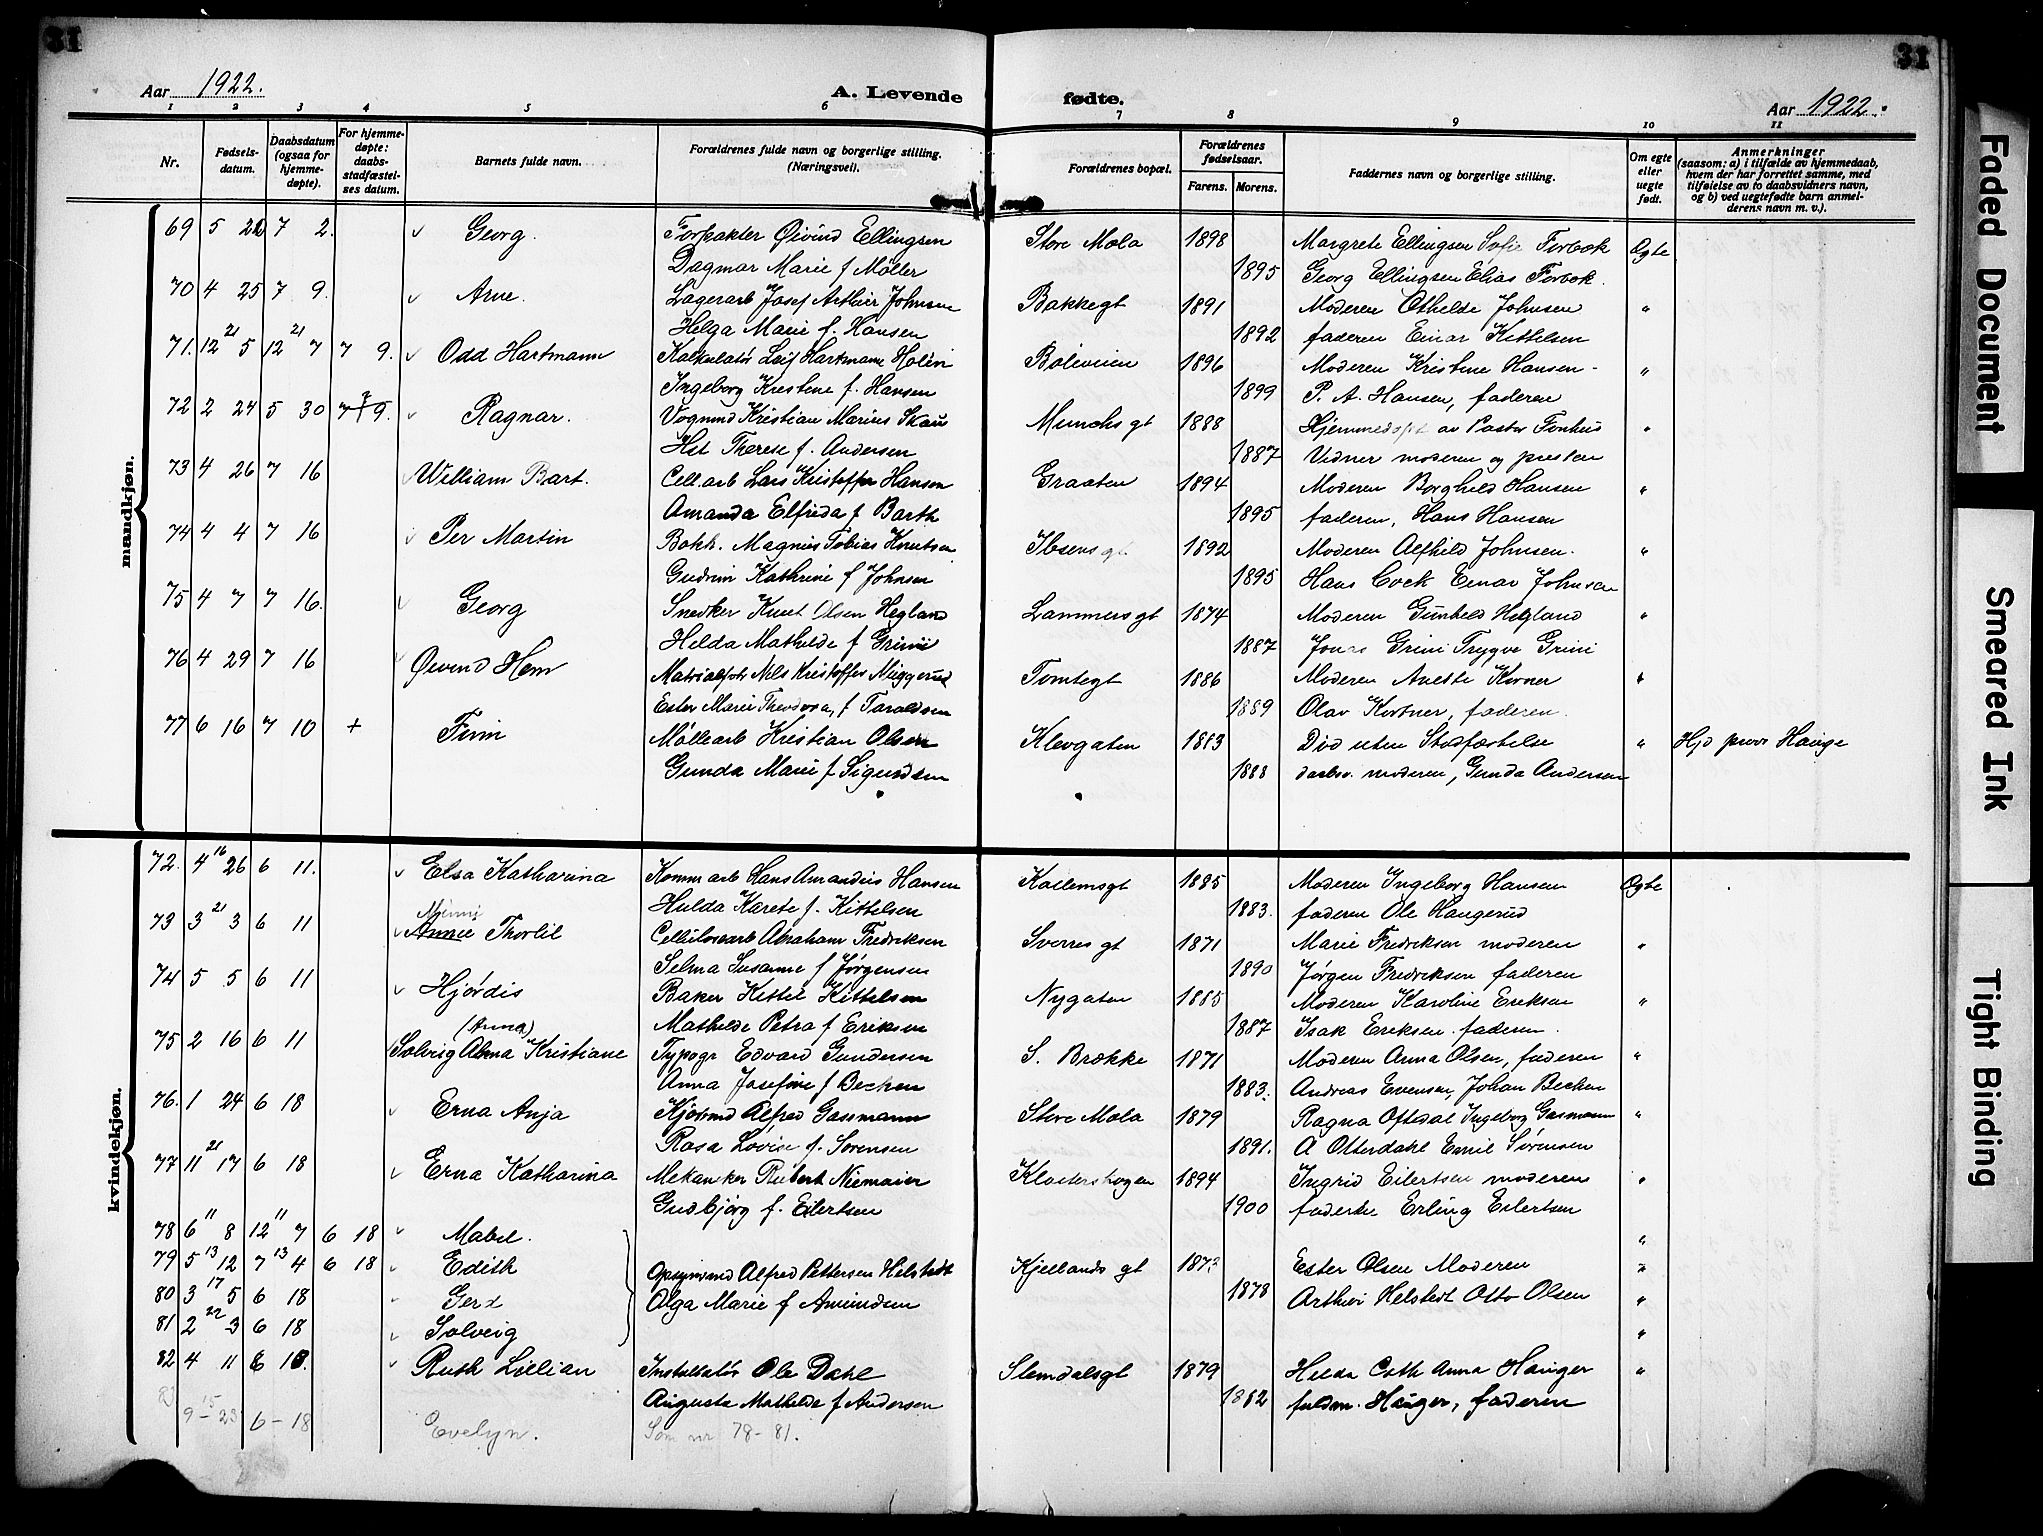 31
31
Aar 1922.
A. Levende
fødte.
Aar 1922.
1 2 3 4 5 6 7 8 9 10 11
Nr.
Fødsels-
datum.
Daabsdatum
(ogsaa for
hjemme-
døpte).
For hjemme-
døpte:
daabs-
stadfæstel-
ses datum.
Barnets fulde navn.
Forældrenes fulde navn og borgerlige stilling.
(Næringsvei).
Forældrenes bopæl.
Forældrenes
fødselsaar.
Farens. Morens.
Faddernes navn og borgerlige stilling.
Om egte
eller
uegte
født.
Anmerkninger
(saasom: a) i tilfælde av hjemmedaab,
hvem der har forrettet samme, med
tilføielse av to daabsvidners navn,
og b) ved uegtefødte barn anmel-
derens navn m. v.).
mandkjøn.
69 5 7 2. Georg. Forpakter Øivind Ellingsen Store Mola 1898 Margrete Ellingsen Sofie Forbok Egte
Dagmar Marie f Möller 1895 Georg Ellingsen Elias Forbok.
70 4 25 7 9. Arne. Lagerarb Josef Arthur Johnsen Bakkegt 1891 Moderen Othilde Johnsen "
Helga Marie f. Hansen 1892 faderen Einar Kittelsen
71. 12 21 5 12 21 7 7 9. Odd Hartmann Kalkulatör Leif Hartmann Holevi Böleveien 1896 Moderen Kristine Hansen - "
Ingeborg Kristine f. Hansen 1899 P. A. Hansen, faderen
72 2 24 5 30 7 9. Ragnar. Vognmd Kristian Marius Skau Munchs gt 1888 Hjemmedøpt av Pastor Fonhus "
Hst Therese f. Andersen 1887 Vidner moderen og presten
73 4 26 7 16 William Bart. Cell.arb Lars Kristoffer Hansen Graaten 1894 Moderen Borghild Hansen "
Amanda Elfrida f Barth 1895 faderen, Hans Hansen
74 4 4 7 16 Per Martin Bokh. Magnus Tobias Knutsen Ibsens gt 1892 Moderen Alfhild Johnsen. "
Gudrun Kathrine f Johnsen 1895 Hans Cock Einar Johnsen
75 4 7 7 16. Georg Snedker Knut Olsen Hegland Lammers gt 1874 Moderen Gunhild Hegland "
Helda Mathilde f Grini 1887 Jonas Grini Trygve Grini
76 4 29 7 16 Øivind Hem Matrialforv Nils Kristoffer Muggerud Tomtegt 1886 Moderen Anette Kortner "
Ester Marie Theodora, f Taraldsen 1889 Olav Kortner, faderen.
77 6 16 7 10 + Finn Møllearb Kristian Olsen Klevgaten 1883 Død uten Stadfæstelse " Hjd prov Hauge
Gunda Marie f Sigurdsen 1888 daabsv. moderen, Gunda Andersen
kvindekjøn.
72. 4 16 26 6 11. Elsa Katharina Komm arb Hans Amandus Hansen Kallemsgt 1885 Moderen Ingeborg Hansen Egte
Hulda Karete f. Kittelsen 1883. faderen Ole Haugerud
73 3 21 3 6 11 Annie Thorlil Cellulosearb Abraham Fredriksen Sverres gt 1871 Marie Fredriksen moderen "
Selma Susanne f Jørgensen 1890 Jørgen Fredriksen faderen
74 5 5 6 11 Hjördis Baker Kittel Kittelsen Nygaten 1885 Moderen Karoline Eriksen "
Mathilde Petra f Eriksen 1887 Isak Eriksen. faderen.
(Anna)
75 2 16 6 11 Solveig Alma Kristiane Typogr Edvard Gundersen S. Brække 1871 Moderen Anna Olsen, faderen "
Anna Josefine f Bechen 1883. Andreas Evensen, Johan Bechen
76. 1 24 6 18 Erna Anja Kjöremd Alfred Gassmann Store Mola 1879 Ragna Oftedal Ingeborg Gasmann "
Rosa Lovise f. Sørensen 1891. A Otterdahl Emil Sørensen
77 11 21 17 6 18 Erna Katharina Mekaniker Robert Niemaier Klosterskogen 1894 Ingrid Eilertsen moderen "
Gudbjörg f. Eilertsen 1900 faderte Erling Eilertsen
78 6 11 8 12 11 7 6 18 Mabel. "
79 5 13 12 7 13 4 6 18 Edith Opsynsmd Alfred Pettersen Helstedt Kjellands gt 1873 Ester Olsen Moderen "
80 3 17 5 6 18 Gerd Olga Marie f Amundsen 1878 Arthur Helstedt Otto Olsen "
81 2 22 3 6 18 Solveig "
82 4 11 6 18. Ruth Lillian Installatör Ole Dahl Slemdalsgt 1879 Helda Cath Anna Hauger "
Augusta Mathilde f Andersen 1882 fuldm. Hauger, faderen
83 9 15 23 6 - 18 Evelyn. Som nr 78 - 81.
Faded Document
Smeared Ink
Tight Binding